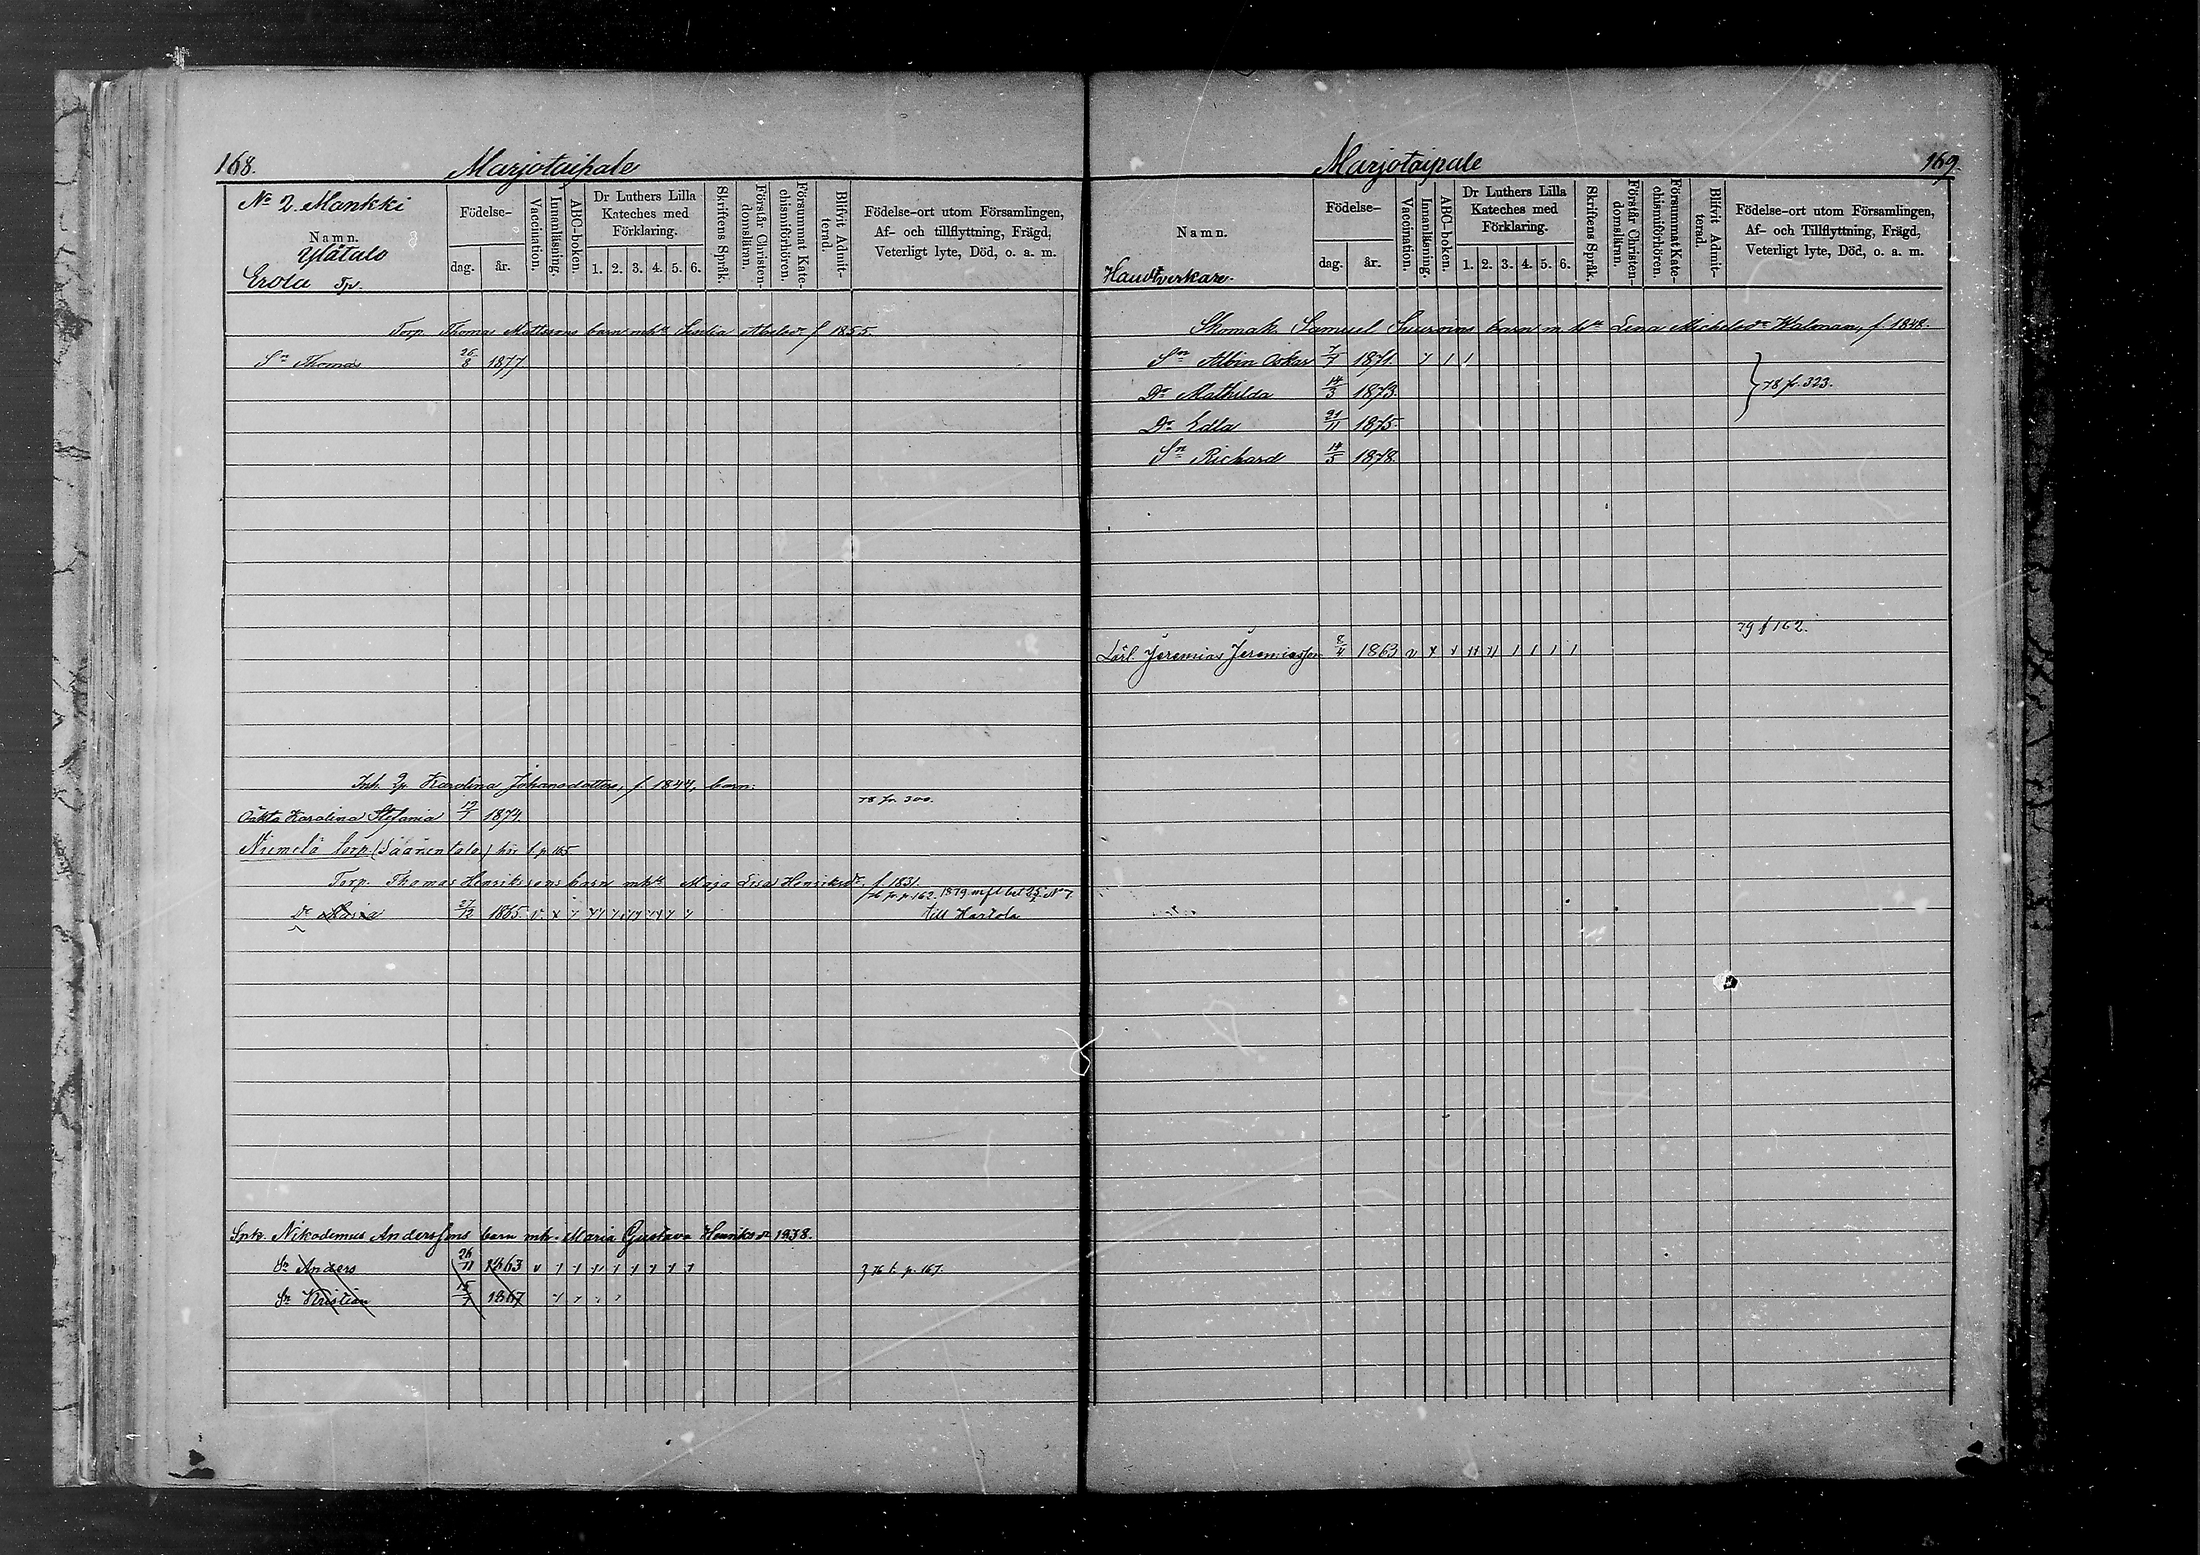 168.
Marjotaipale
No 2. Mankki
Namn.
Ylätalo
Erola Tp.
Födelse-
dag. år.
Vaccination.
Innanläsning.
ABC-boken.
Dr Luthers Lilla
Kateches med
Förklaring.
1. 2. 3. 4. 5. 6.
Skriftens Språk.
Förstår Christen-
domslärnn.
Försummat Kate-
chismiförhören.
Blifvit Admit-
terad.
Födelse-ort utom Församlingen,
Af- och tillflyttning, Frägd,
Veterligt lyte, Död, o. a. m.
Torp. Thomas Mattssons barn mhu f. 1855.
Sn Thomas 26/8 1877
Inh. Karolina Johansdotter, f. 1844, barn:
78 fr. 300.
Oäkta Karolina Stefania 1874.
Niemelä torp. (Säärentalo) hör t. p. 165.
Torp. Thomas Henrikssons barn mhu Maja Lisa Henriksdr. f. 1831.
fr. p. 162. 1879 m fl bet No 7.
Dr Maria 27/12 1865. v. x
till Hartola
Nikodemus Anderssons barn mhu Maria Gustava Henriksdr 1838.
Sn Anders 26/11 1863 v
76 t. p. 167.
Sn Kristian 15/7 1867
Marjotaipale
169.
Namn.
Handtverkare.
Födelse-
dag. år.
Vaccination.
Innanläsning.
ABC-boken.
Dr Luthers Lilla
Kateches med
Förklaring.
1. 2. 3. 4. 5. 6.
Skriftens Språk.
Förstår Christen-
domslärnn.
Försummat Kate-
chismiförhören.
Blifvit Admit-
terad.
Födelse-ort utom Församlingen,
Af- och Tillflyttning, Frägd,
Veterligt lyte, Död, o. a. m.
Skomak. Samuel barn m. hu Lena Michelsdr f. 1848.
Sn Albin Oskar 7/1 1871.
78 fr. 323.
Dr Mathilda 14/3 1873.
Dr Edla 21/11 1875.
Sn Richard 14/5 1878
79 f 162.
Lärl. Jeremias Jeremiasson 8/4 1863 v x